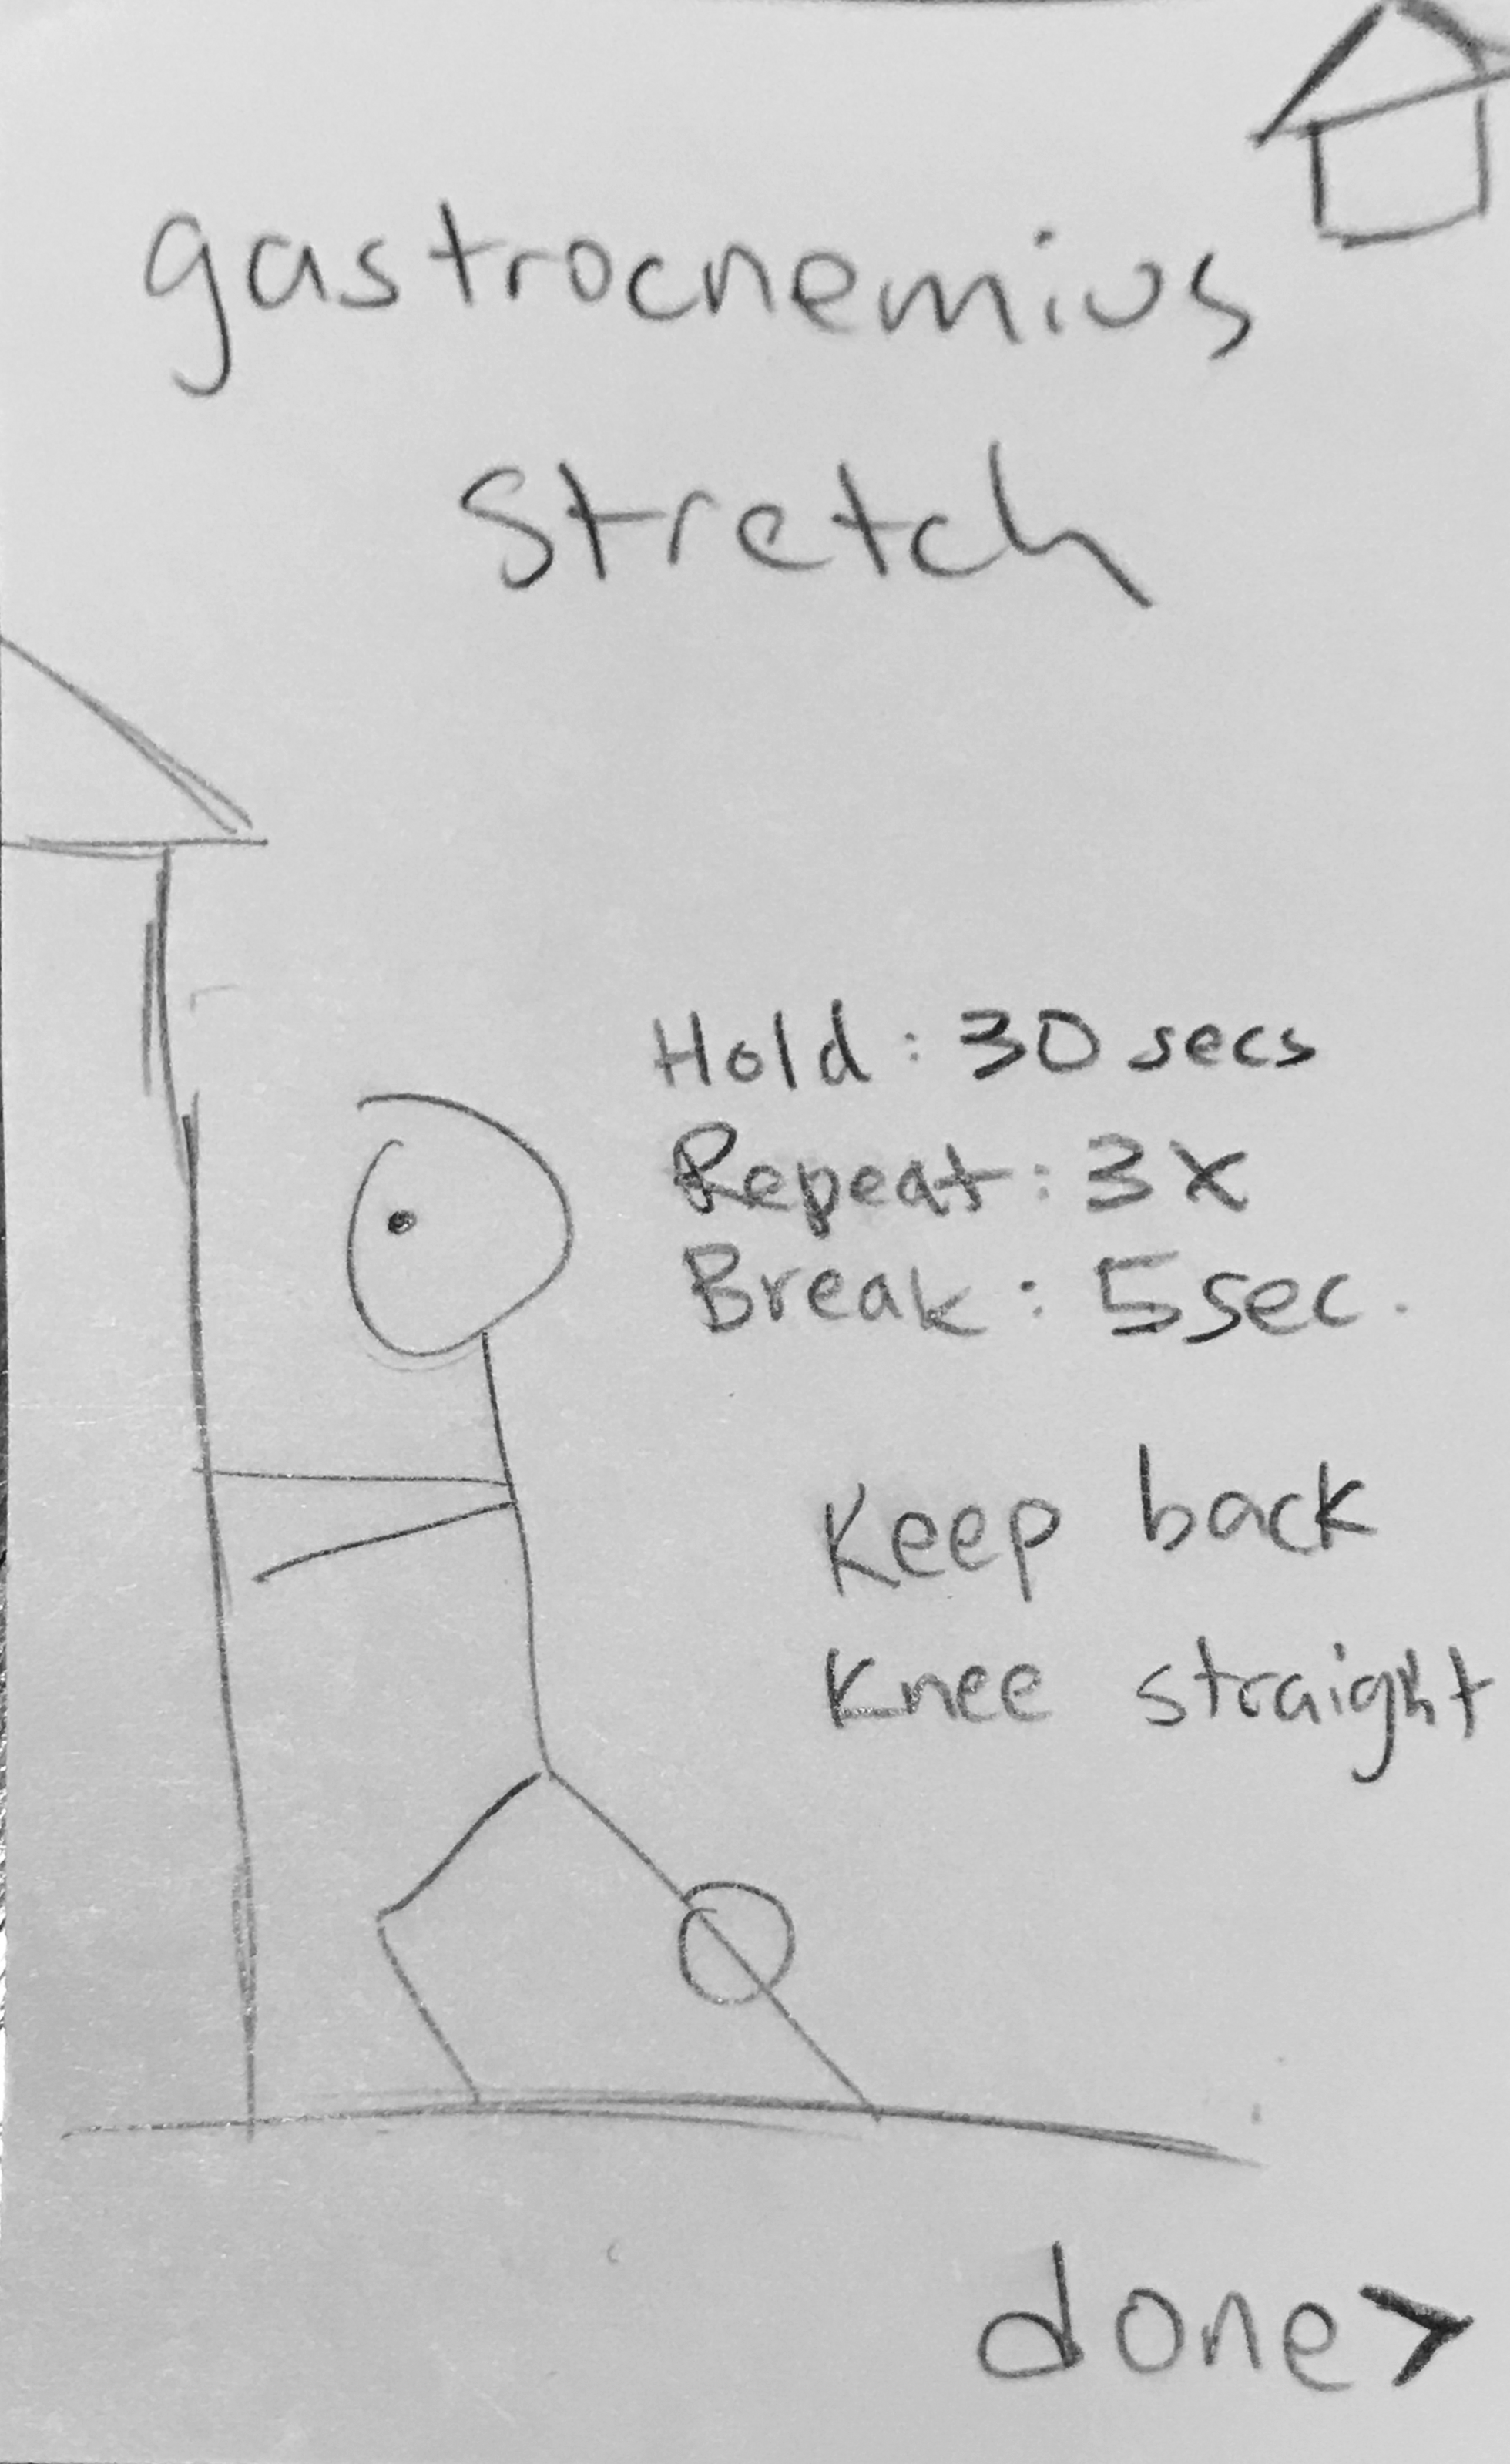 gastrocnemius
stretch
Hold : 30 secs
Repeat : 3x
Break : 5 sec.
Keep back
Knee straight
done >